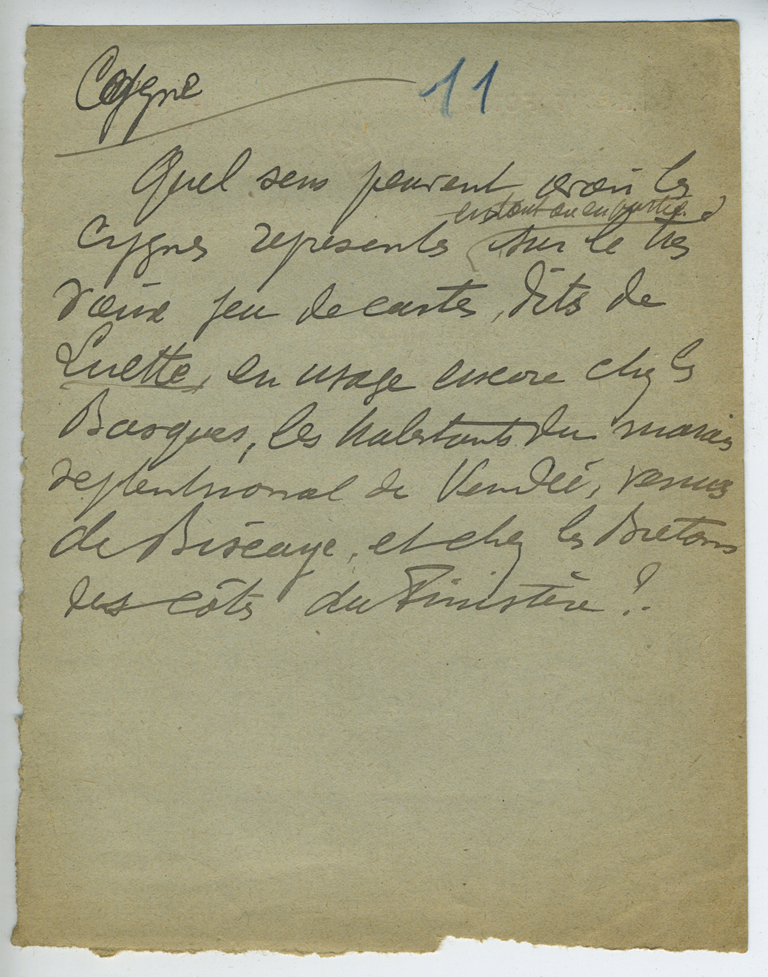 Cygne
11
Quel sens peuvent avoir les
en tout ou en partie
cygnes représentés sur le très
vieux jeu de cartes, dits de
Luette, en usage encore chez les
Basques, les habitants du marais
septentrional de Vendée, venus
de Biscaye, et chez les Bretons
des côtes du Finistère ?.